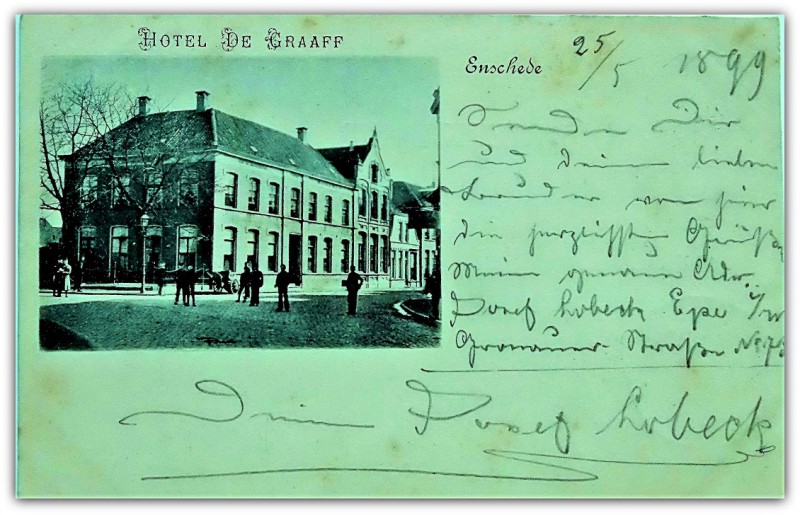 HOTEL DE GRAAFF
Enschede
25/5 1899
Sende Dir
und deinen lieben
von hier
die herzlichsten Grüße
Meine genaue Adr.
Josef Lobeck Epe i/W
Gronauer Straße No
Dein Josef Lobeck